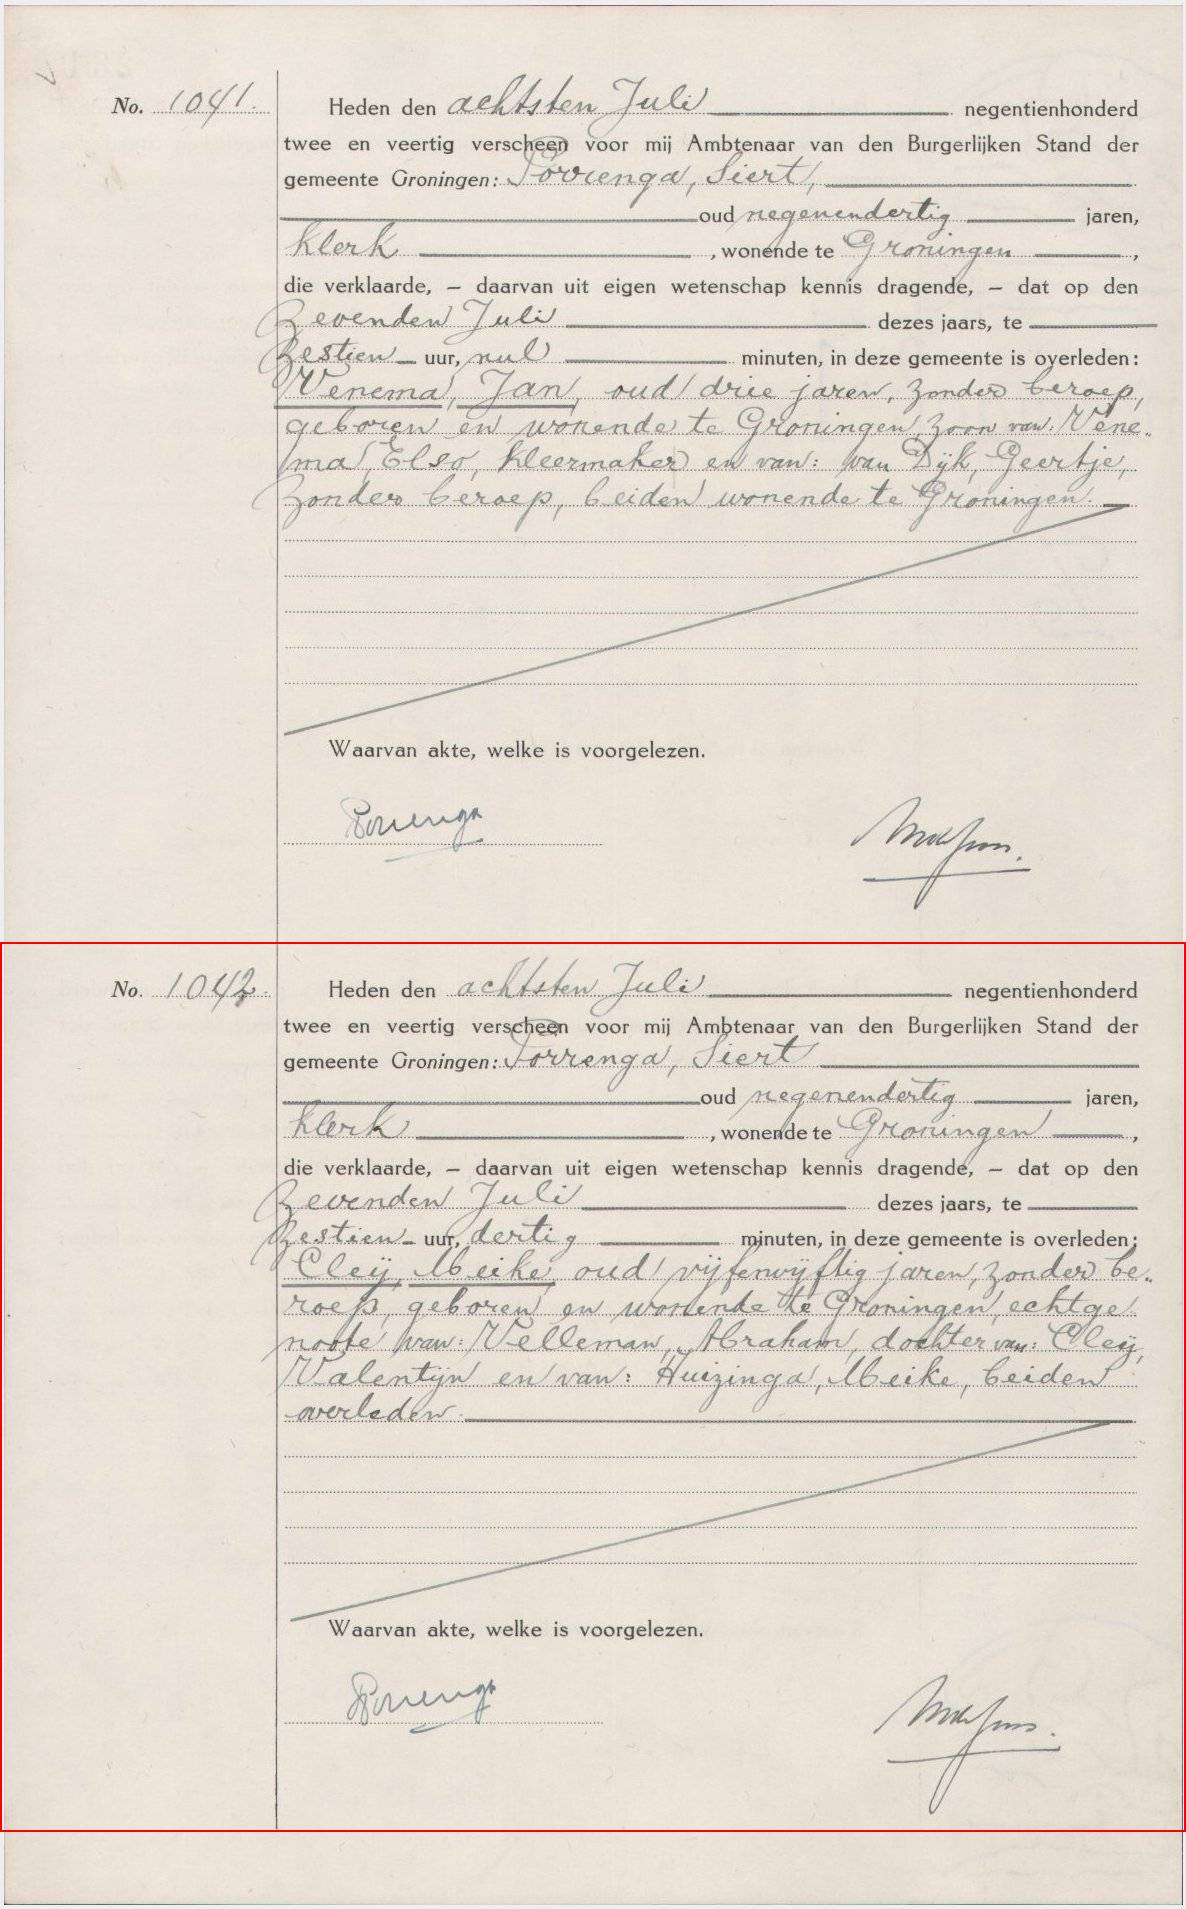 No. 1041. Heden den achtsten Juli negentienhonderd
twee en veertig verscheen voor mij Ambtenaar van den Burgerlijken Stand der
gemeente Groningen: Porrenga, Siert,
oud negenendertig jaren,
klerk, wonende te Groningen,
die verklaarde, — daarvan uit eigen wetenschap kennis dragende, — dat op den
zevenden Juli dezes jaars, te
zestien uur, nul minuten, in deze gemeente is overleden:
Venema, Jan, oud drie jaren, zonder beroep,
geboren en wonende te Groningen, zoon van: Vene„
ma, Elso, kleermaker en van: van Dijk, Geertje,
zonder beroep, beiden wonende te Groningen.
Waarvan akte, welke is voorgelezen.
Porrenga
No. 1042. Heden den achtsten Juli negentienhonderd
twee en veertig verscheen voor mij Ambtenaar van den Burgerlijken Stand der
gemeente Groningen: Porrenga, Siert
oud negenendertig jaren,
klerk, wonende te Groningen,
die verklaarde, — daarvan uit eigen wetenschap kennis dragende, — dat op den
zevenden Juli dezes jaars, te
zestien uur, dertig minuten, in deze gemeente is overleden:
Cleij, Meike, oud vijfenvijftig jaren, zonder be„
roep, geboren en wonende te Groningen, echtge
noote van: Velleman, Abraham, dochter van: Cleij,
Valentijn en van: Huizinga, Meike, beiden
overleden.
Waarvan akte, welke is voorgelezen.
Porrenga